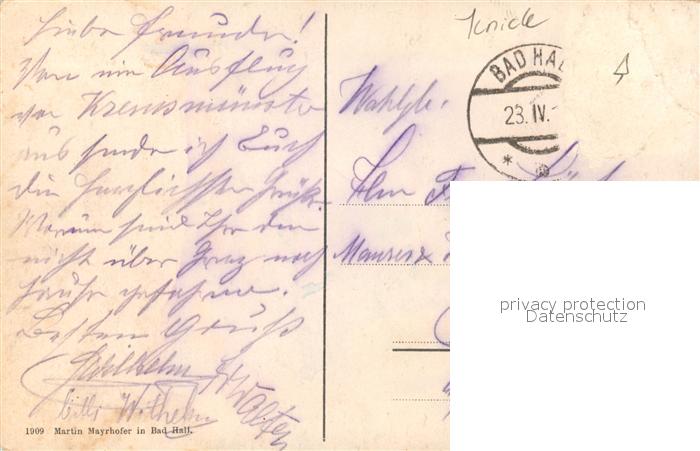 Liebe Freunde!
Von ein Ausflug
von Kremsmünster
aus sende ich Euch
die herzlichsten Grüße.
Warum sind Ihr den
nicht über Graz nach
Hause gefahren.
Besten Gruß
Wilhelm
Wilhelm
Walter
1909 Martin Mayrhofer in Bad Hall.
Knick
BAD HAL
23. IV.
Wohlgb.
Herrn
privacy protection
Datenschutz